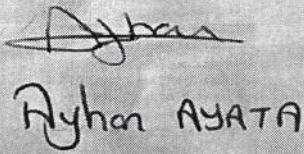 Ayhan
Ayhan AYATA